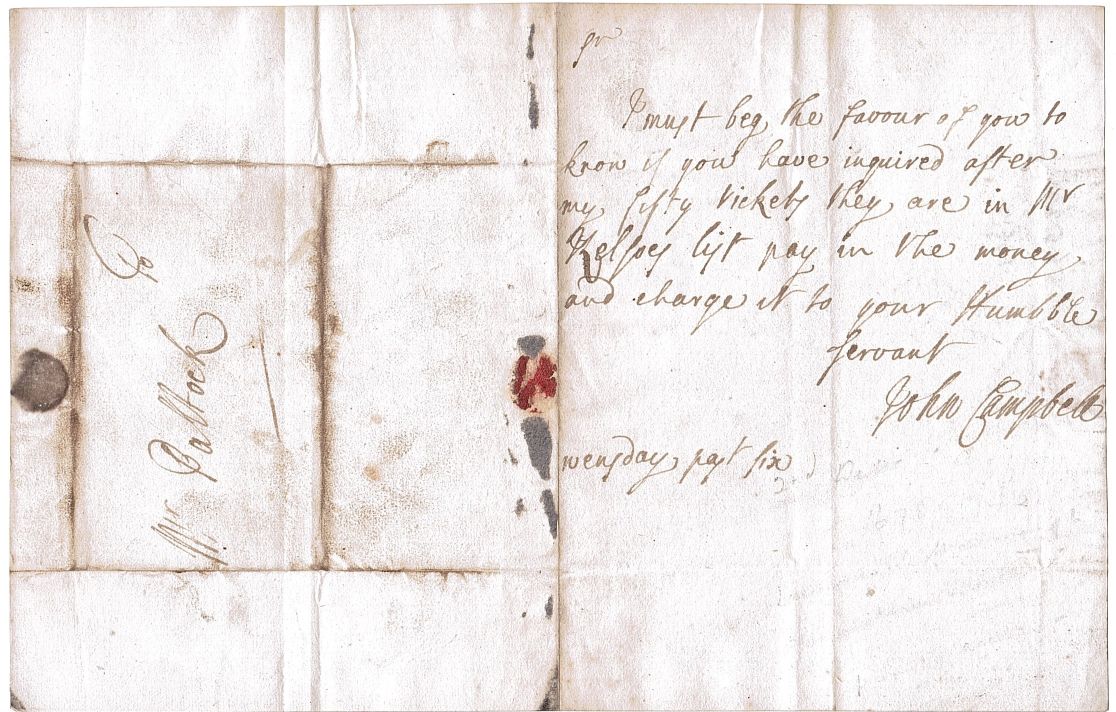 To
Mr Paltock
Sr
I must beg the favour of you to
know if you have inquired after
my fifty tickets they are in Mr
Kelsoes list pay in the money
and charge it to your Humble
servant
John Campbell
wensday past six